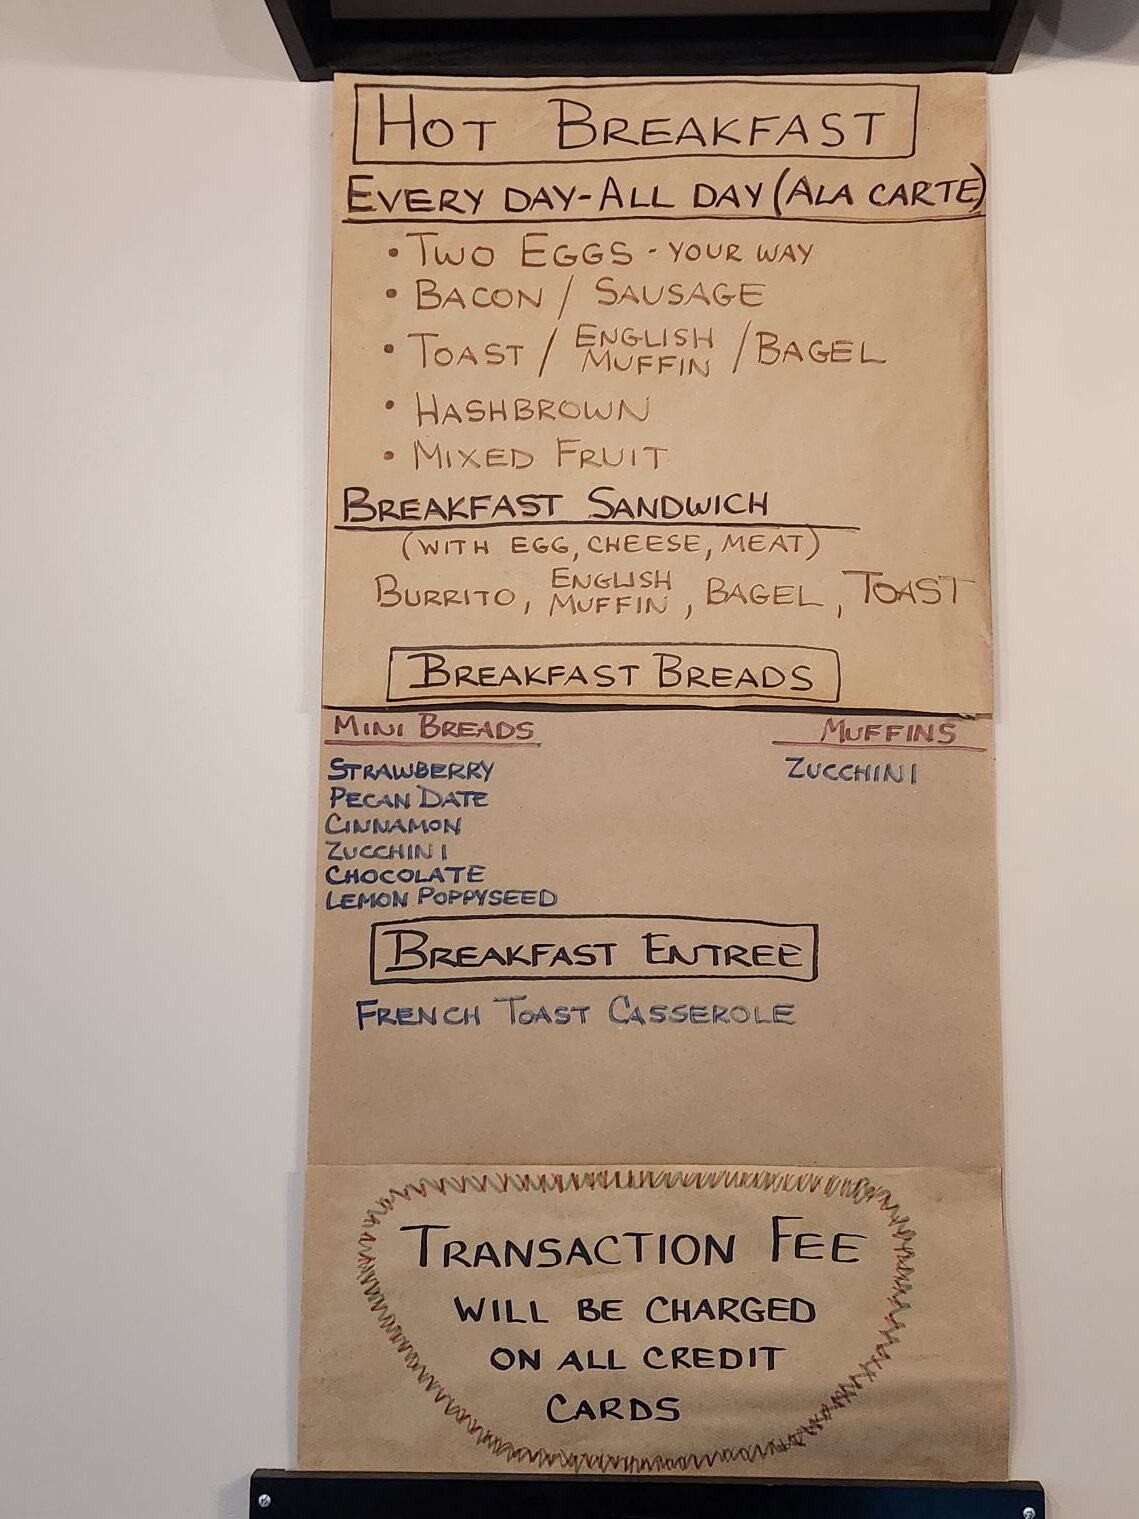 HOT BREAKFAST
EVERY DAY-ALL DAY (ALA CARTE)
• TWO EGGS - YOUR WAY
• BACON / SAUSAGE
• TOAST / ENGLISH MUFFIN / BAGEL
• HASHBROWN
• MIXED FRUIT
BREAKFAST SANDWICH
(WITH EGG, CHEESE, MEAT)
BURRITO, ENGLISH MUFFIN, BAGEL, TOAST
BREAKFAST BREADS
MINI BREADS
STRAWBERRY
PECAN DATE
CINNAMON
ZUCCHINI
CHOCOLATE
LEMON POPPYSEED
MUFFINS
ZUCCHINI
BREAKFAST ENTREE
FRENCH TOAST CASSEROLE
TRANSACTION FEE
WILL BE CHARGED
ON ALL CREDIT
CARDS